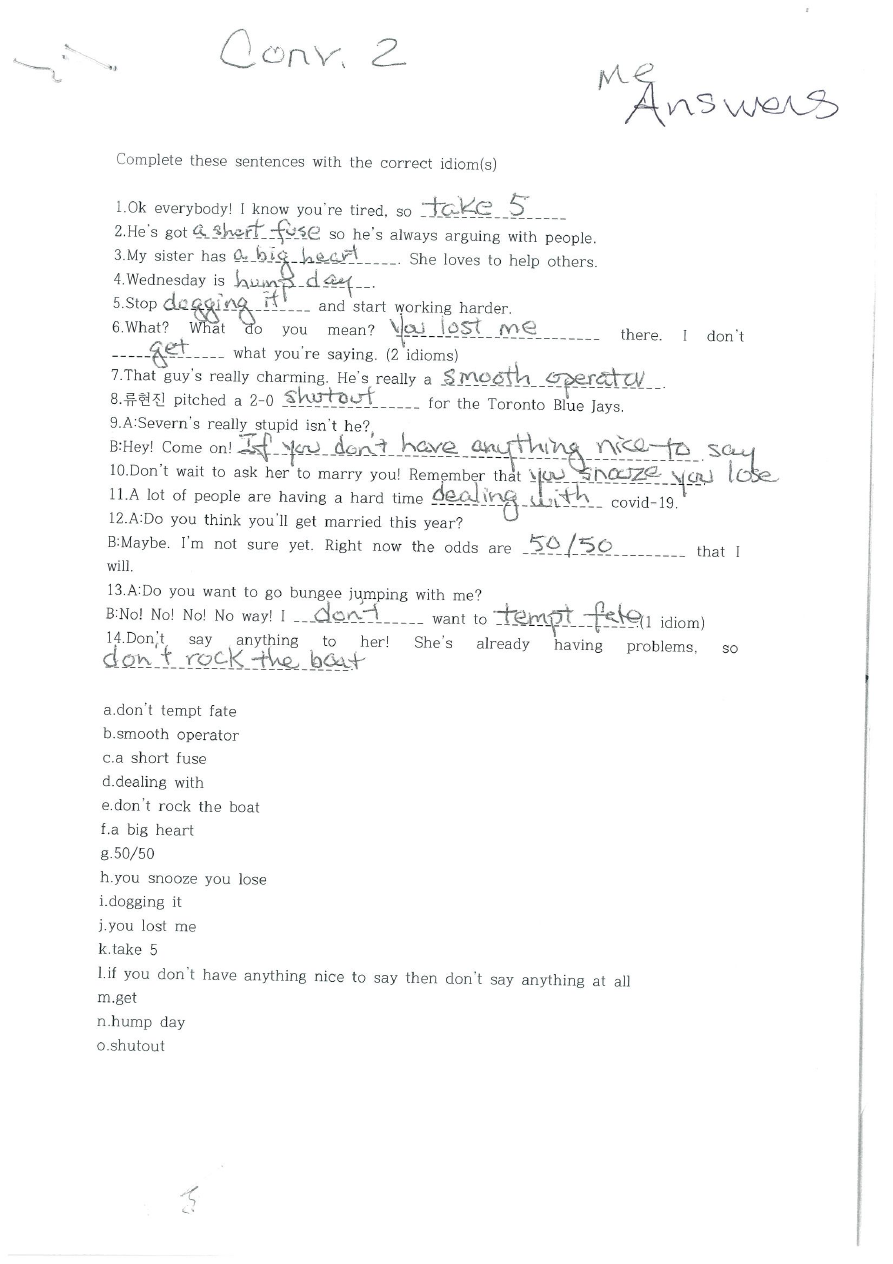 Conv. 2
me
Answers
Complete these sentences with the correct idiom(s)
1.Ok everybody! I know you're tired, so take 5
2.He's got a short fuse so he's always arguing with people.
3.My sister has a big heart. She loves to help others.
4.Wednesday is hump day.
5.Stop dogging it and start working harder.
6.What? What do you mean? You lost me there. I don't
get what you're saying. (2 idioms)
7.That guy's really charming. He's really a smooth operator.
8.류현진 pitched a 2-0 shutout for the Toronto Blue Jays.
9.A:Severn's really stupid isn't he?
B:Hey! Come on! If you don't have anything nice to say
10.Don't wait to ask her to marry you! Remember that you snooze you lose
11.A lot of people are having a hard time dealing with covid-19.
12.A:Do you think you'll get married this year?
B:Maybe. I'm not sure yet. Right now the odds are 50/50 that I
will.
13.A:Do you want to go bungee jumping with me?
B:No! No! No! No way! I don't want to tempt fate(1 idiom)
14.Don't say anything to her! She's already having problems, so
don't rock the boat
a.don't tempt fate
b.smooth operator
c.a short fuse
d.dealing with
e.don't rock the boat
f.a big heart
g.50/50
h.you snooze you lose
i.dogging it
j.you lost me
k.take 5
l.if you don't have anything nice to say then don't say anything at all
m.get
n.hump day
o.shutout